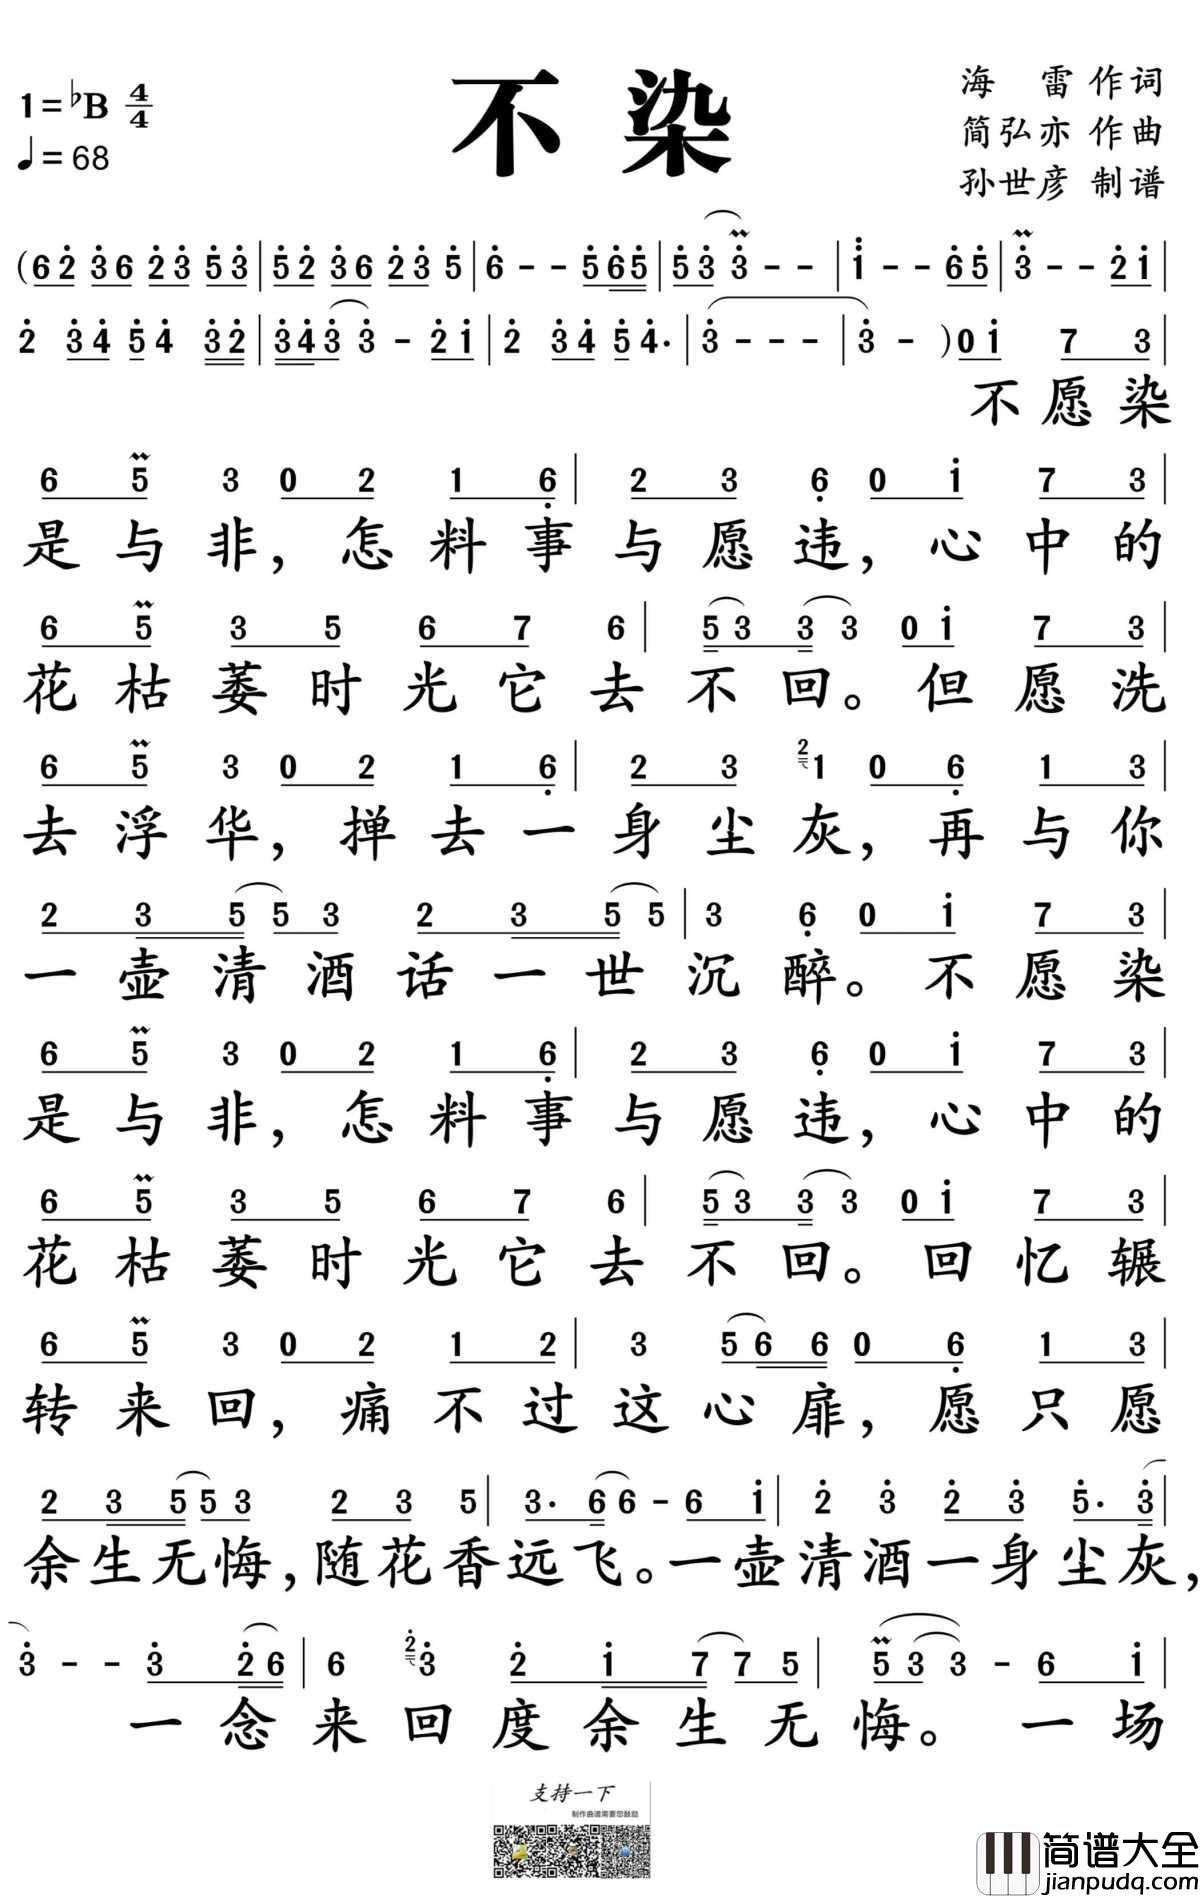 不染
1=♭B 4/4
♩=68
海 雷 作词
简弘亦 作曲
孙世彦 制谱
(6 2 3 6 2 3 5 3 | 5 2 3 6 2 3 5 | 6 - - 5 6 5 | 5 3 3 - - | 1 - - 6 5 | 3 - - 2 1 |
2 3 4 5 4 3 2 | 3 4 3 3 - 2 1 | 2 3 4 5 4. | 3 - - - | 3 - ) 0 1 7 3 |
不愿染
6 5 3 0 2 1 6 | 2 3 6 0 1 7 3 |
是与非，怎料事与愿违，心中的
6 5 3 5 6 7 6 | 5 3 3 3 0 1 7 3 |
花枯萎时光它去不回。但愿洗
6 5 3 0 2 1 6 | 2 3 2 1 0 6 1 3 |
去浮华，掸去一身尘灰，再与你
2 3 5 5 3 2 3 5 5 | 3 6 0 1 7 3 |
一壶清酒话一世沉醉。不愿染
6 5 3 0 2 1 6 | 2 3 6 0 1 7 3 |
是与非，怎料事与愿违，心中的
6 5 3 5 6 7 6 | 5 3 3 3 0 1 7 3 |
花枯萎时光它去不回。回忆辗
6 5 3 0 2 1 2 | 3 5 6 6 0 6 1 3 |
转来回，痛不过这心扉，愿只愿
2 3 5 5 3 2 3 5 | 3. 6 6 - 6 1 | 2 3 2 3 5. 3 |
余生无悔，随花香远飞。一壶清酒一身尘灰，
3 - - 3 2 6 | 6 2 3 2 1 7 7 5 | 5 3 3 - 6 1 |
一念来回度余生无悔。一场
支持一下
制作曲谱需要您鼓励
简谱大全
jianpudq.com